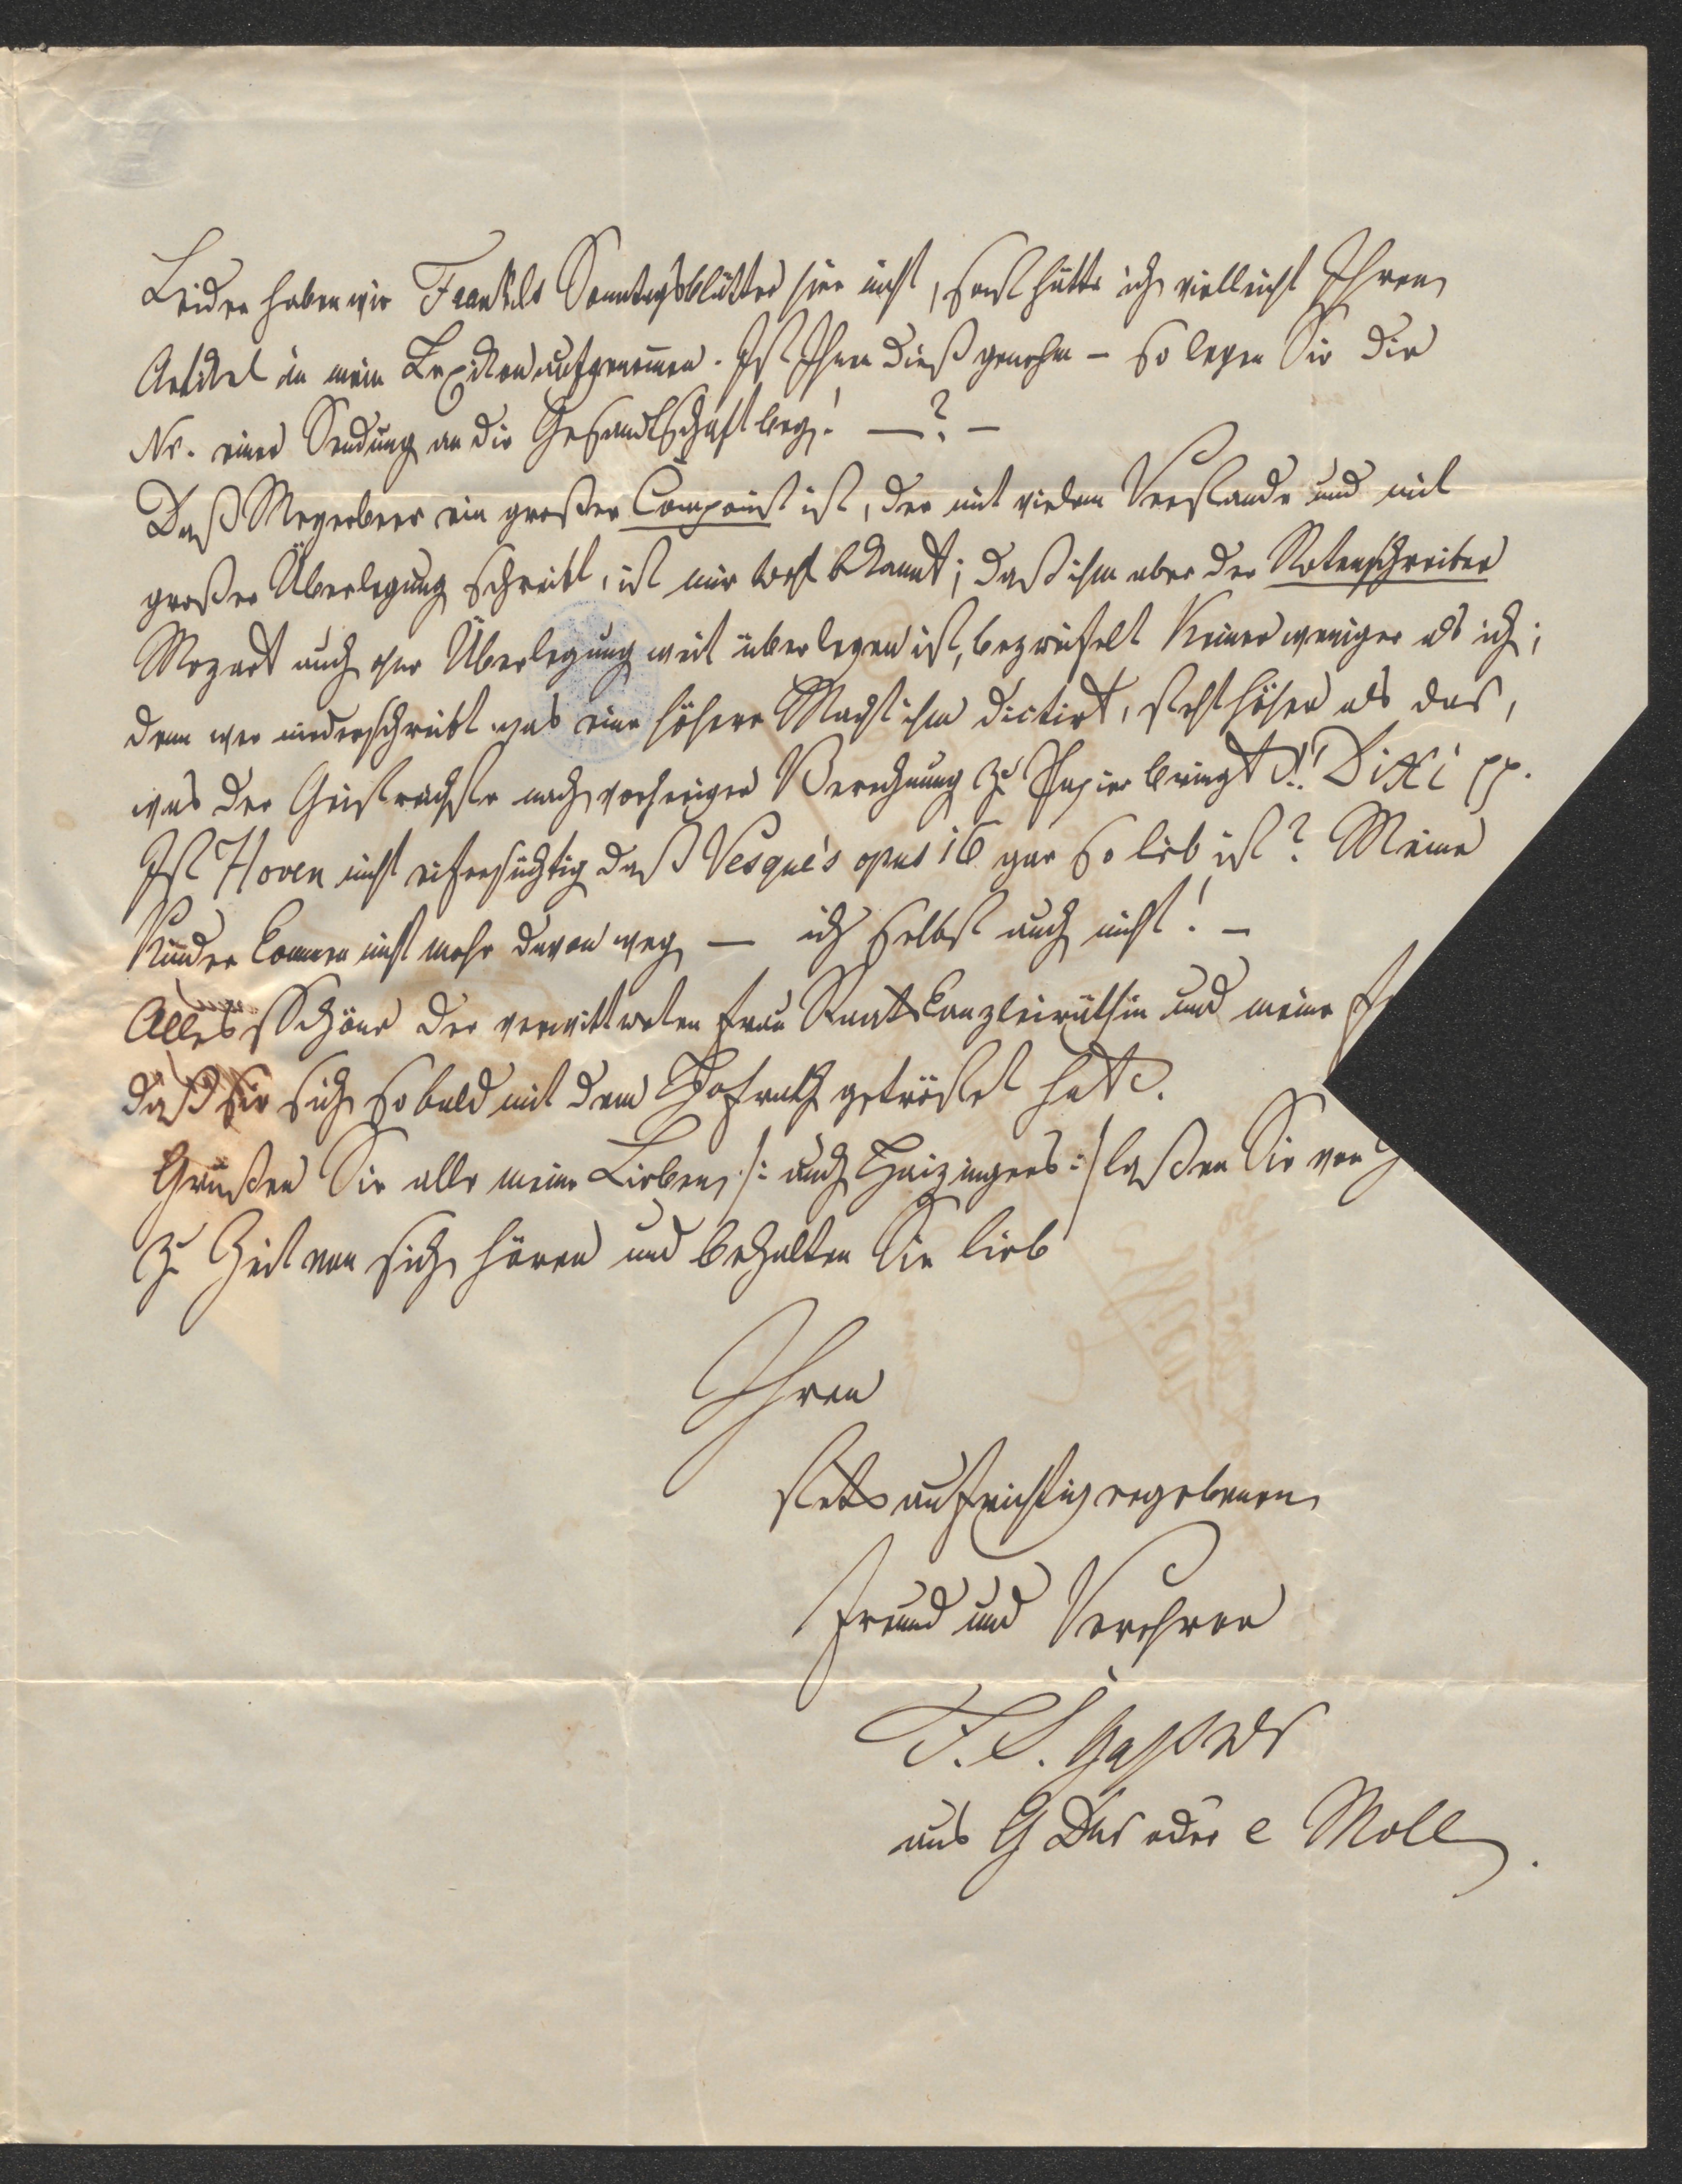 Leider haben wir Frankls Sonntagsblätter hier nicht, sonst hätte ich vielleicht Ihren
Artikel in mein Lexikon aufgenommen. Ist Ihnen dieß genehm – so legen Sie die
Nr. einer Sendung an die Gesandtschaft bey! —?—
Daß Meyerbeer ein großer Componist ist, der mit vielem Verstande und mit
großer Überlegung schreibt, ist mir wohl bekannt; daß ihm aber der Notenschreiber
Mozart auch ohne Überlegung weit überlegen ist, bezweifelt Keiner weniger als ich;
denn wer niederschreibt was eine höhere Macht ihm dictirt, steht höher als das,
was der Geistreichste nach vorheriger Berechnung zu Papier bringt!! Dixi pp.
Ist Hoven nicht eifersüchtig daß Vesque's opus 16 gar so lieb ist? Meine
Kinder kommen nicht mehr davon weg — ich selbst auch nicht! –
Alles Schöne der verwittweten Frau Staatskanzleiräthin und meine
daß sie sich so bald mit dem Hofrath getröstet hat.
Grüßen Sie alle meine Lieben /: auch Haizingers :/ laßen Sie von
zu Zeit von sich hören und behalten Sie lieb
Ihren
stets aufrichtig ergebenen
Freund und Verehrer
F. S. Gaßner
aus G Dur oder e Moll.